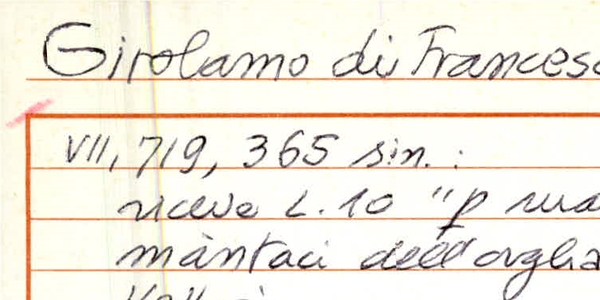 Girolamo di Francesc
VII, 719, 365 sin. :
riceve L. 10 "p
màntaci dell'orgha